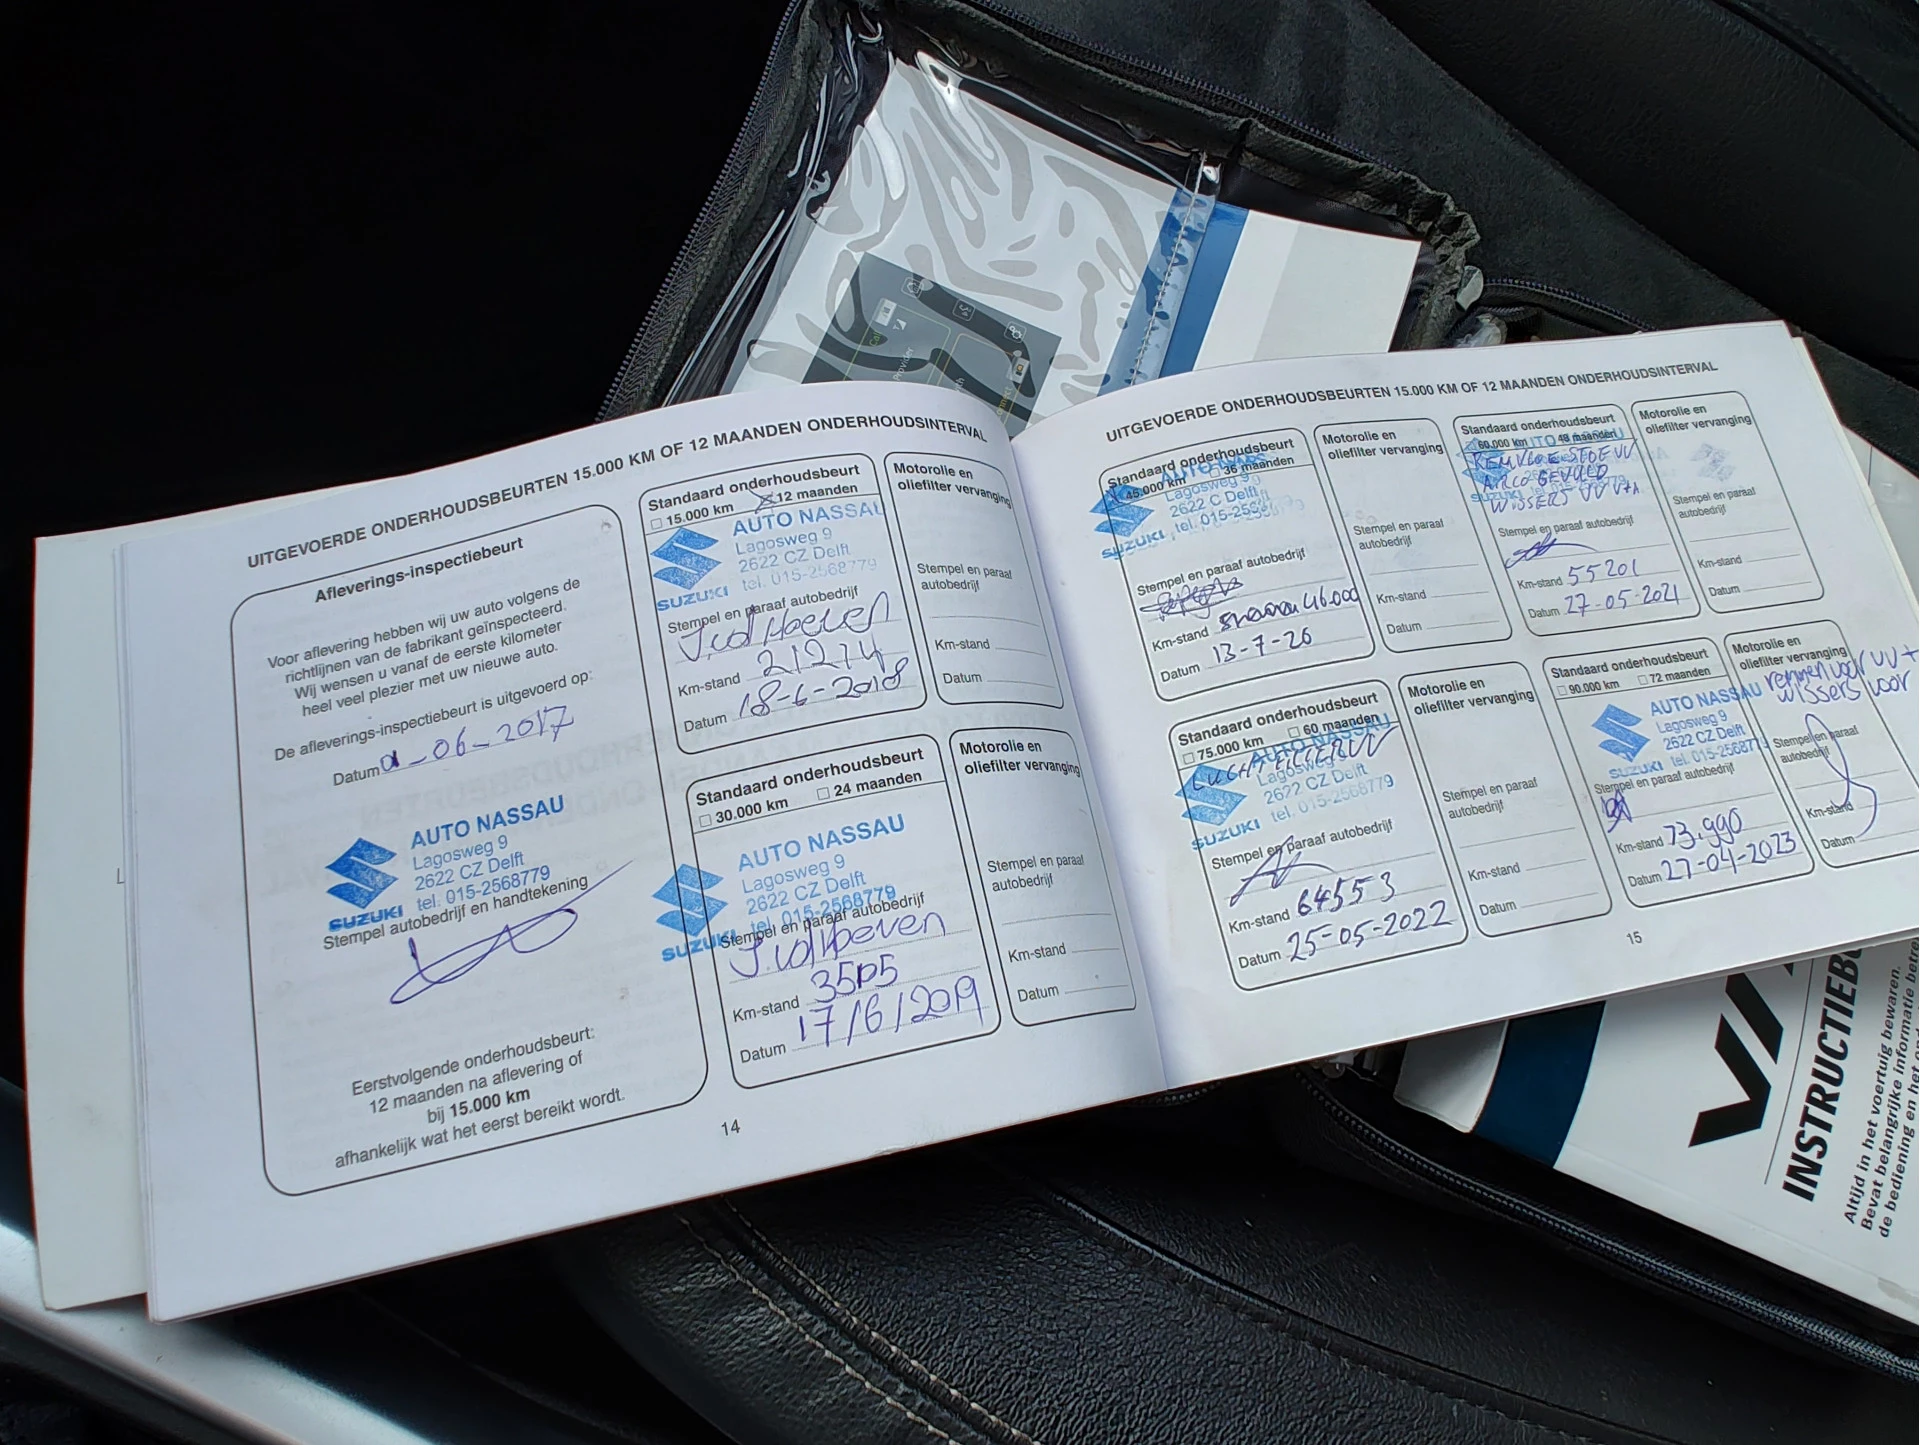 UITGEVOERDE ONDERHOUDSBEURTEN 15.000 KM OF 12 MAANDEN ONDERHOUDSINTERVAL
Afleverings-inspectiebeurt
Voor aflevering hebben wij uw auto volgens de
richtlijnen van de fabrikant geïnspecteerd.
Wij wensen u vanaf de eerste kilometer
heel veel plezier met uw nieuwe auto.
De afleverings-inspectiebeurt is uitgevoerd op:
Datum 01-06-2017
AUTO NASSAU
Lagosweg 9
2622 CZ Delft
tel. 015-2568779
SUZUKI
Stempel autobedrijf en handtekening
Eerstvolgende onderhoudsbeurt:
12 maanden na aflevering of
bij 15.000 km
afhankelijk wat het eerst bereikt wordt.
Standaard onderhoudsbeurt
15.000 km 12 maanden
AUTO NASSAU
Lagosweg 9
2622 CZ Delft
tel. 015-2568779
SUZUKI
Stempel en paraaf autobedrijf
J.vdHoeven
Km-stand 21274
Datum 18-6-2018
Motorolie en
oliefilter vervanging
Stempel en paraaf
autobedrijf
Km-stand
Datum
Standaard onderhoudsbeurt
30.000 km 24 maanden
AUTO NASSAU
Lagosweg 9
2622 CZ Delft
tel. 015-2568779
SUZUKI
Stempel en paraaf autobedrijf
J.vdHoeven
Km-stand
Datum 17/6/2019
Motorolie en
oliefilter vervanging
Stempel en paraaf
autobedrijf
Km-stand
Datum
14
UITGEVOERDE ONDERHOUDSBEURTEN 15.000 KM OF 12 MAANDEN ONDERHOUDSINTERVAL
Standaard onderhoudsbeurt
45.000 km 36 maanden
Lagosweg 9
2622 CZ Delft
tel. 015-2568
SUZUKI
Stempel en paraaf autobedrijf
Km-stand 46.000
Datum 13-7-20
Motorolie en
oliefilter vervanging
Stempel en paraaf
autobedrijf
Km-stand
Datum
Standaard onderhoudsbeurt
60.000 km 48 maanden
REMVLOEISTOF VV
AIRCO GEVULD
WISSERS VV V+A
Stempel en paraaf autobedrijf
Km-stand 55201
Datum 27-05-2021
Motorolie en
oliefilter vervanging
Stempel en paraaf
autobedrijf
Km-stand
Datum
Standaard onderhoudsbeurt
75.000 km 60 maanden
AUTO NASSAU
LUCHTFILTER VV
Lagosweg 9
2622 CZ Delft
tel. 015-2568779
SUZUKI
Stempel en paraaf autobedrijf
Km-stand 64553
Datum 25-05-2022
Motorolie en
oliefilter vervanging
Stempel en paraaf
autobedrijf
Km-stand
Datum
Standaard onderhoudsbeurt
90.000 km 72 maanden
AUTO NASSAU
Lagosweg 9
2622 CZ Delft
tel. 015-256877
SUZUKI
Stempel en paraaf autobedrijf
Km-stand 73.990
Datum 27-04-2023
Motorolie en
oliefilter vervanging
remmen voor VV +
wissers voor
Stempel en paraaf
autobedrijf
Km-stand
Datum
15
INSTRUCTIEB
Altijd in het voertuig bewaren.
Bevat belangrijke informatie
de bediening en het